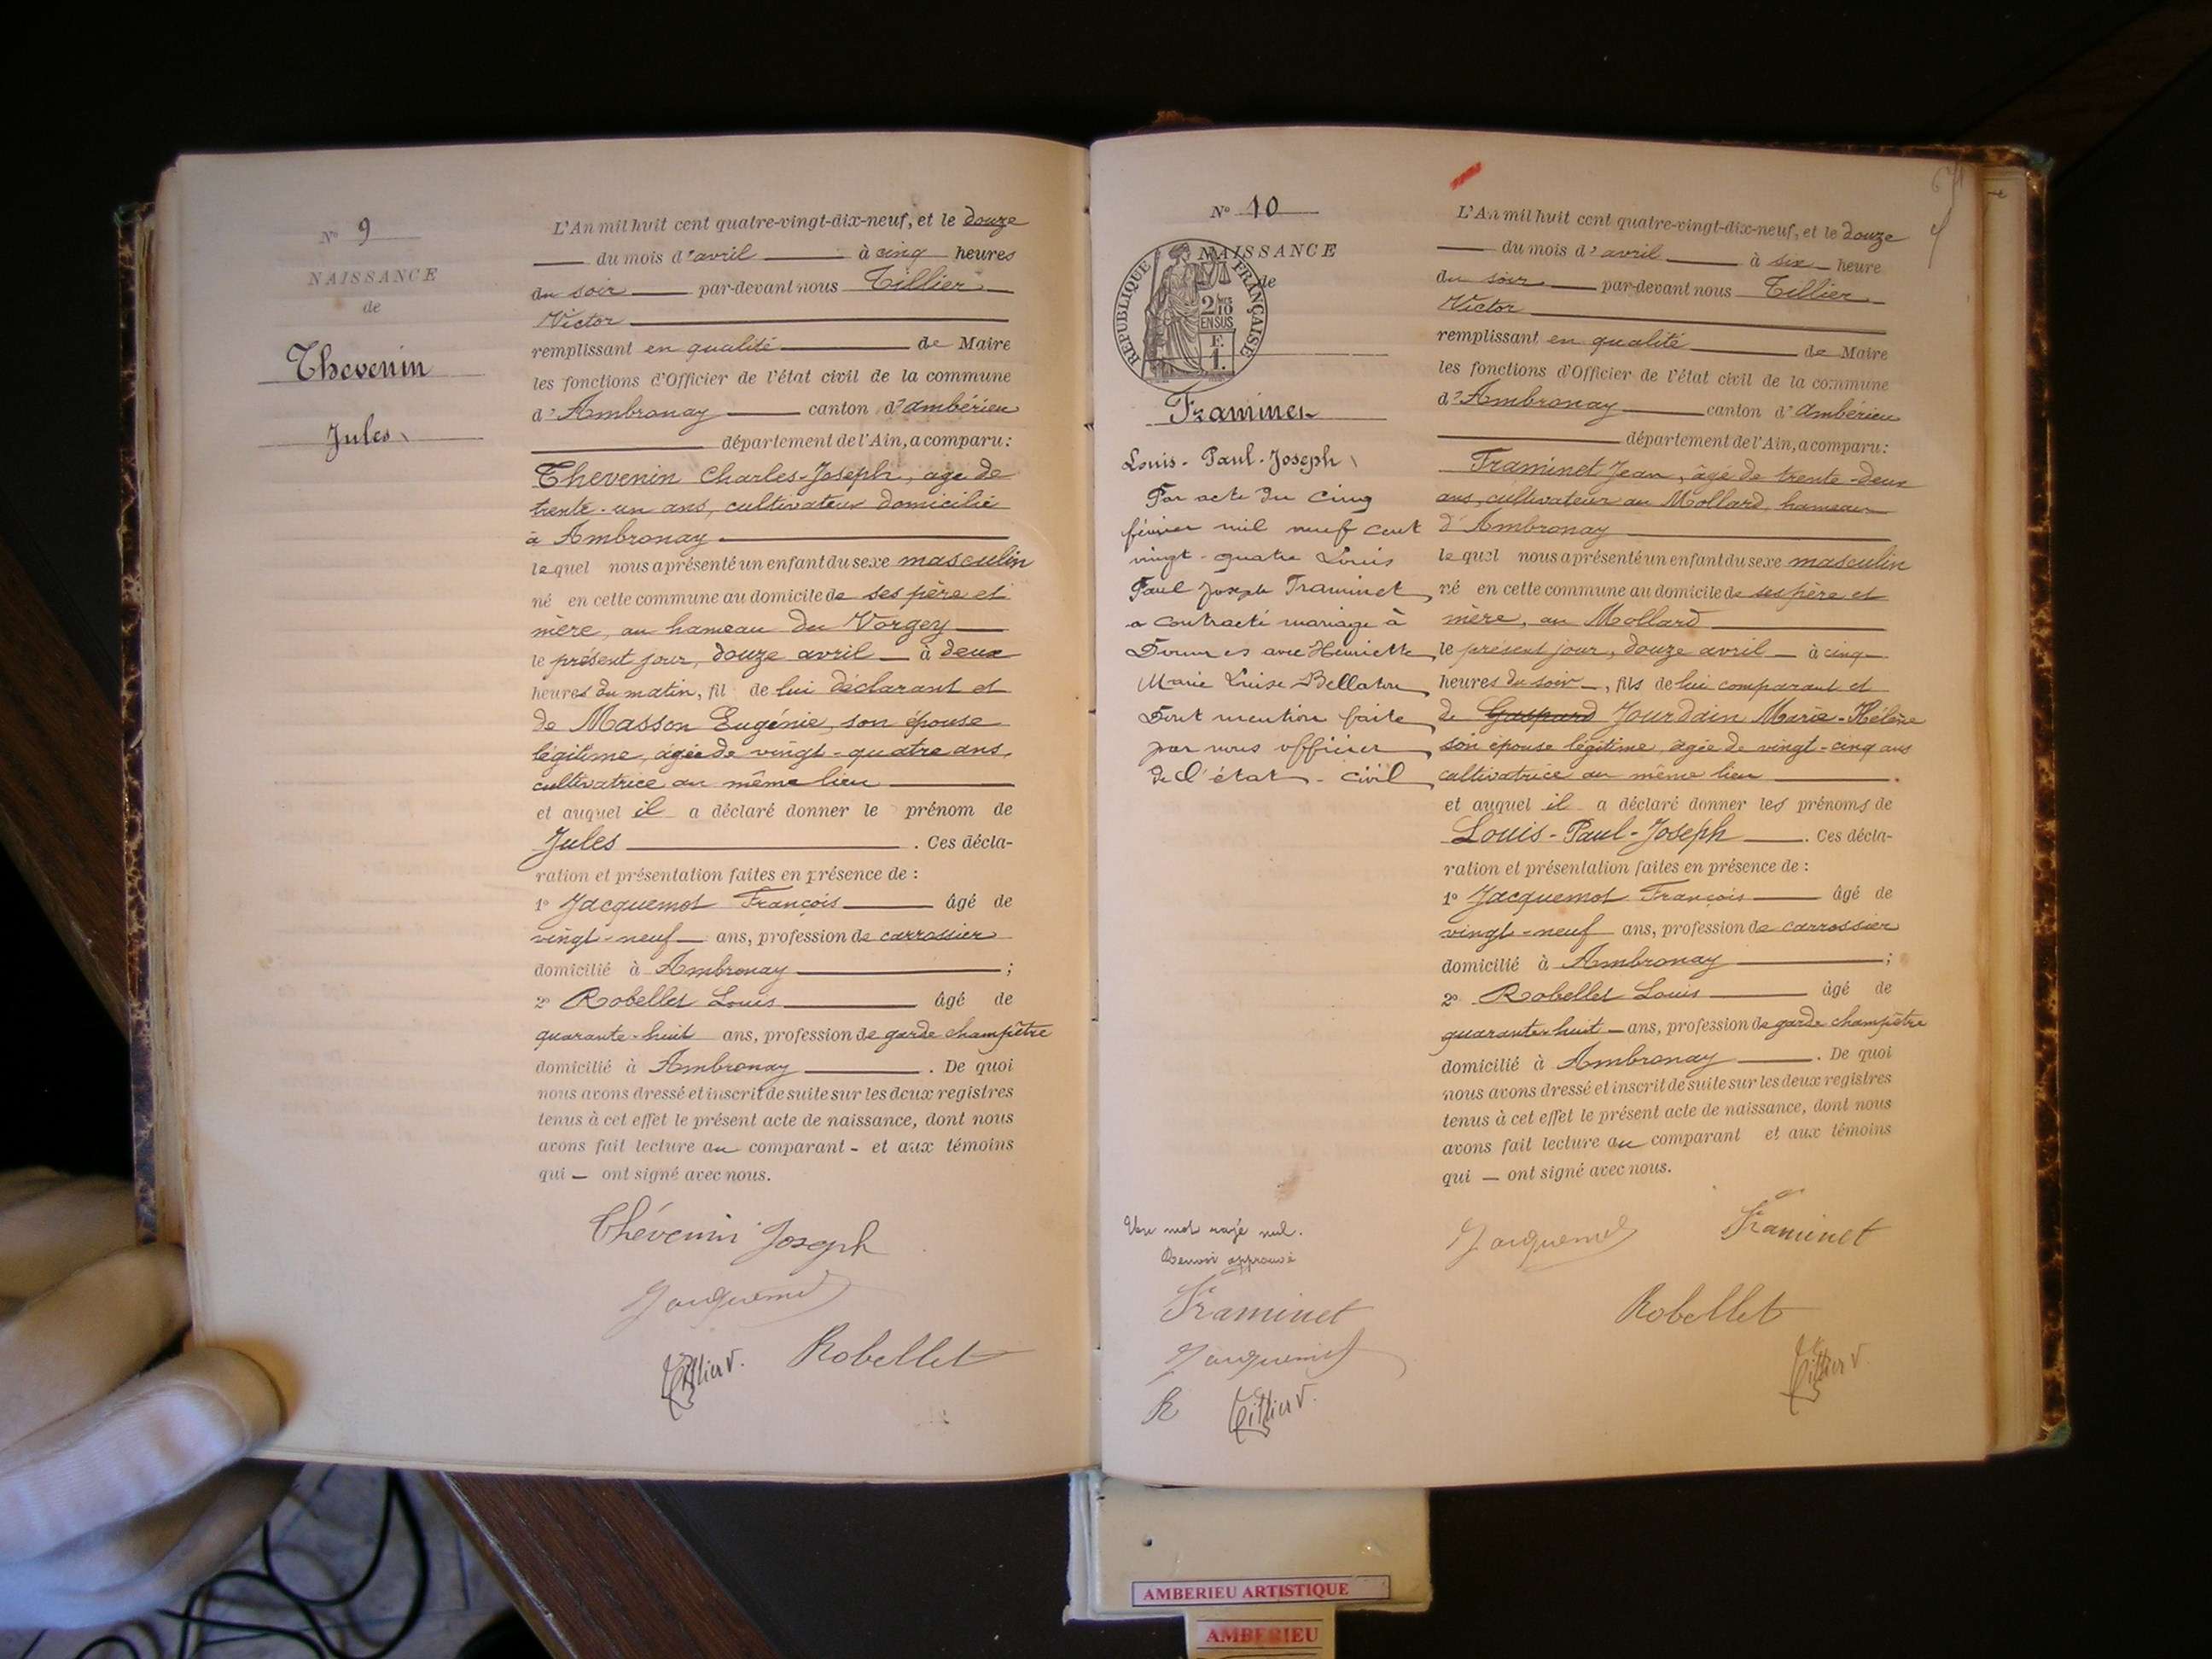 N° 9
NAISSANCE
de
Thevenin
Jules
L'An mil huit cent quatre-vingt-dix-neuf, et le douze
du mois d'avril à cinq heures
du soir par-devant nous Tillier
Victor
remplissant en qualité de Maire
les fonctions d'Officier de l'état civil de la commune
d'Ambronay canton d'ambérieu
département de l'Ain, a comparu:
Thevenin Charles-Joseph, âgé de
trente-un ans, cultivateur domicilié
à Ambronay
lequel nous a présenté un enfant du sexe masculin
né en cette commune au domicile de ses père et
mère, au hameau du Vorgey
le présent jour, douze avril à deux
heures du matin, fil de lui déclarant et
de Masson Eugénie, son épouse
légitime, âgée de vingt-quatre ans,
cultivatrice au même lieu
et auquel il a déclaré donner le prénom de
Jules . Ces décla-
ration et présentation faites en présence de :
1° Jacquemot François âgé de
vingt-neuf ans, profession de carrossier
domicilié à Ambronay ;
2° Robellet Louis âgé de
quarante-huit ans, profession de garde champêtre
domicilié à Ambronay . De quoi
nous avons dressé et inscrit de suite sur les deux registres
tenus à cet effet le présent acte de naissance, dont nous
avons fait lecture au comparant - et aux témoins
qui — ont signé avec nous.
Thévenin Joseph
Jacquemot
Tillier V. Robellet
N° 10
NAISSANCE
de
RÉPUBLIQUE FRANÇAISE
2/10
EN SUS
F.
1.
Framinet
Louis-Paul-Joseph
Par acte du cinq
février mil neuf cent
vingt-quatre Louis
Paul Joseph Framinet
a contracté mariage à
avec Henriette
Marie Louise Bellaton
Dont mention faite
par nous officier
de l'état-civil
L'An mil huit cent quatre-vingt-dix-neuf, et le douze
du mois d'avril à six heure
du soir par-devant nous Tillier
Victor
remplissant en qualité de Maire
les fonctions d'Officier de l'état civil de la commune
d'Ambronay canton d'Ambérieu
département de l'Ain, a comparu:
Framinet Jean, âgé de trente-deux
ans, cultivateur au Mollard, hameau
d'Ambronay
lequel nous a présenté un enfant du sexe masculin
né en cette commune au domicile de ses père et
mère, au Mollard
le présent jour, douze avril — à cinq
heures du soir —, fils de lui comparant et
de Gaspard Jourdain Marie-Hélène
son épouse légitime, âgée de vingt-cinq ans
cultivatrice au même lieu .
et auquel il a déclaré donner les prénoms de
Louis-Paul-Joseph . Ces décla-
ration et présentation faites en présence de :
1° Jacquemot François âgé de
vingt-neuf ans, profession de carrossier
domicilié à Ambronay ;
2° Robellet Louis âgé de
quarante-huit — ans, profession de garde champêtre
domicilié à Ambronay . De quoi
nous avons dressé et inscrit de suite sur les deux registres
tenus à cet effet le présent acte de naissance, dont nous
avons fait lecture au comparant et aux témoins
qui — ont signé avec nous.
Jacquemot Framinet
Robellet
Tillier V
Un mot rayé nul.
Renvoi approuvé
Framinet
Jacquemot
R Tillier V.
AMBERIEU ARTISTIQUE
AMBERIEU